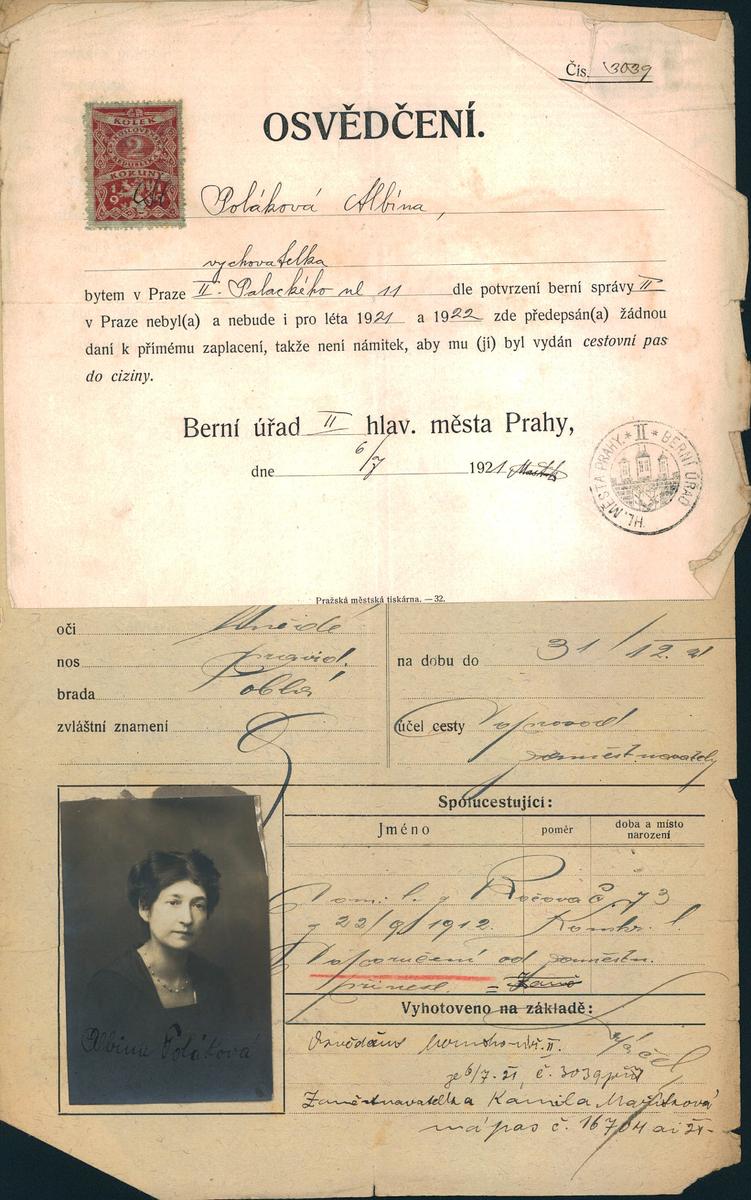 Čís. 3039
OSVĚDČENÍ.
KOLEK
2
KORUNY
Poláková Albína,
vychovatelka
bytem v Praze II. Palackého ul 11 dle potvrzení berní správy II
v Praze nebyl(a) a nebude i pro léta 1921 a 1922 zde předepsán(a) žádnou
daní k přímému zaplacení, takže není námitek, aby mu (jí) byl vydán cestovní pas
do ciziny.
Berní úřad II hlav. města Prahy,
dne 6/7 1921
HL. MĚSTA PRAHY. * II * BERNÍ ÚŘAD
Pražská městská tiskárna. — 32.
oči hnědé
nos pravid.
brada oblá
zvláštní znamení
na dobu do 31/12. 21
účel cesty Doprovod
zaměstnavatelky
Spolucestující:
Jméno poměr doba a místo narození
Dom. l. z Ročova č. 73
z 22/9 1912. Konskr. l.
Doporučení od zaměstn.
přinesl.
Albina Poláková
Vyhotoveno na základě:
Osvědčení II.
ze 6/7. 21, č. 3039
Zaměstnavatelka Kamila
má pas č. 16704 ai 21-